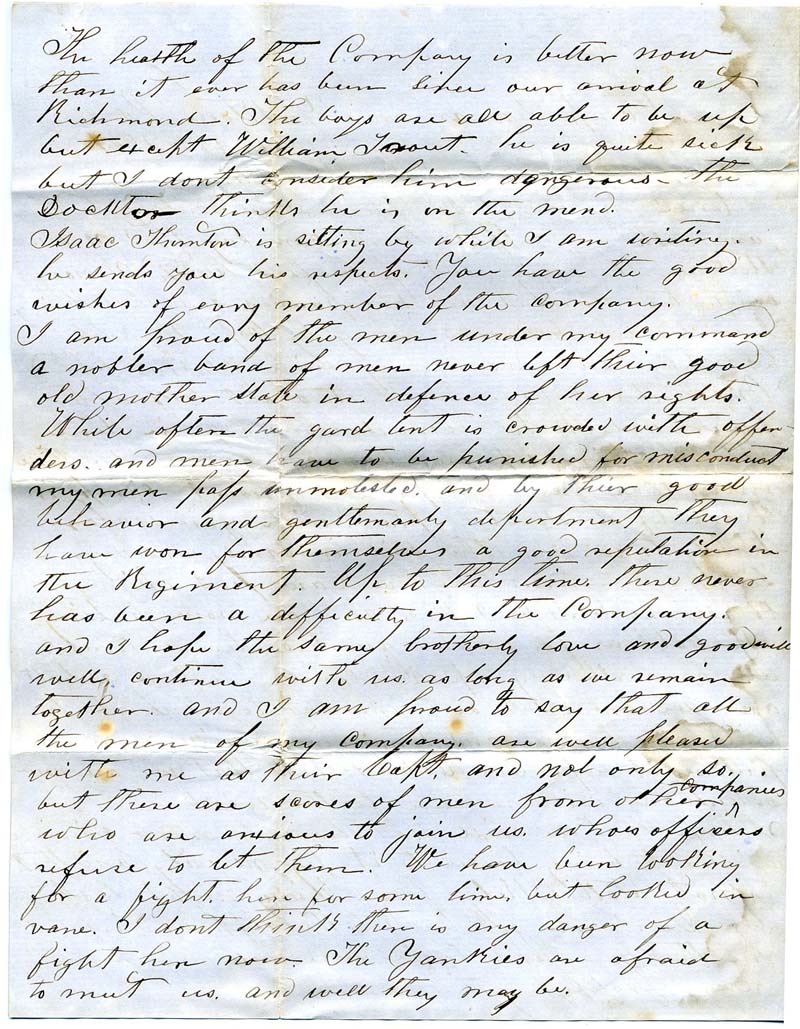 The health of the Company is better now
than it ever has been since our arrival at
Richmond. The boys are all able to be up
but except William Trout. he is quite sick
but I dont consider him dangerous - the
Docktor thinks he is on the mend.
Isaac Thornton is sitting by while I am writing.
he sends you his respects. You have the good
wishes of evry member of the company.
I am proud of the men under my command
a nobler band of men never left thier good
old mother state in defence of her rights.
While often the gard tent is crowded with offen-
ders. and men have to be punished for misconduct
my men pass unmolested. and by thier good
behavior and gentlemanly department they
have won for themselves a good reputation in
the Rigiment. Up to this time. there never
has been a difficulty in the Company.
and I hope the same brotherly love and good will
will continue with us. as long as we remain
together. and I am proud to say that all
the men of my company. are well pleased
with me as thier Capt. and not only so.
but there are scores of men from other companies
who are anxious to join us. whoes offisers
refuse to let them. We have been looking
for a fight. here for some time. but looked in
vane. I dont think there is any danger of a
fight here now. The Yankies are afraid
to meet us. and well they may be.